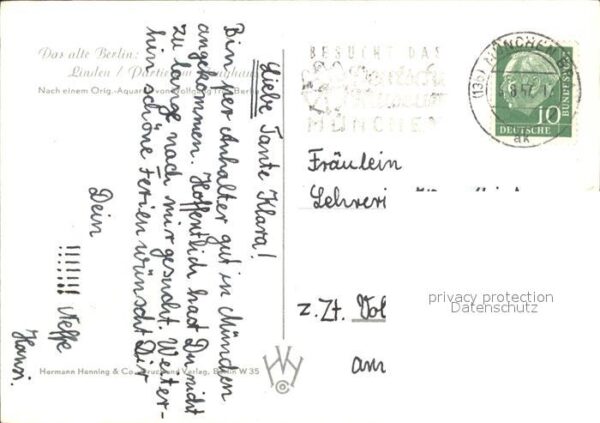 Das alte Berlin:
Linden / Partie am Zeughaus
Nach einem Orig.-Aquarell von Wolfgang Berlin
Liebe Tante Klara!
Bin per Anhalter gut in München
angekommen. Hoffentlich hast Du nicht
zu lange nach mir gesucht. Weiter-
hin schöne Ferien wünscht Dir
Dein
!!!!!!! Neffe
Hansi.
Hermann Henning & Co., Druck und Verlag, Berlin W 35
BESUCHT DAS
Deutsche
Museum
MÜNCHEN
(13b) MÜNCHEN
ak
10
DEUTSCHE
BUNDESPOST
Fräulein
Lehreri
z. Zt. Vol
am
privacy protection
Datenschutz
HWH
Co